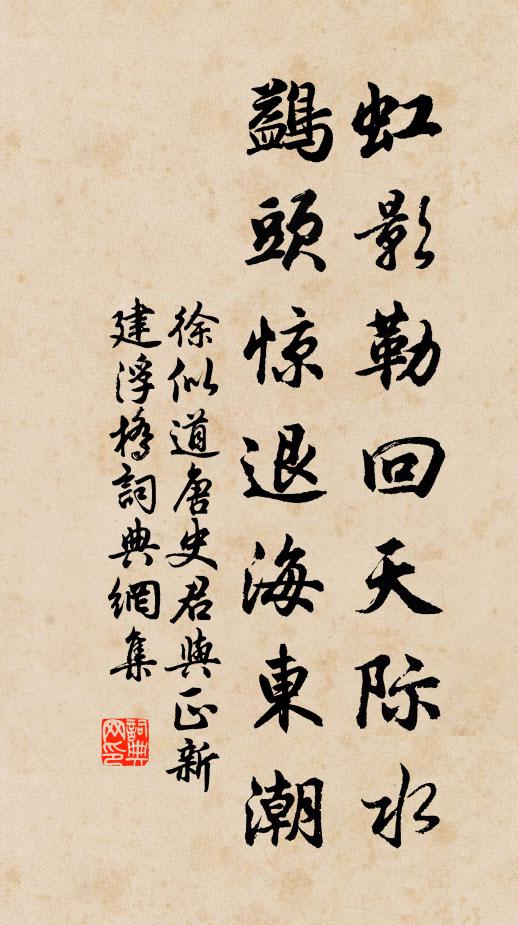 虹影勒回天际水
鷁頭惊退海東潮
徐似道唐史君與正新
建浮橋詞典網集
詞典
网印